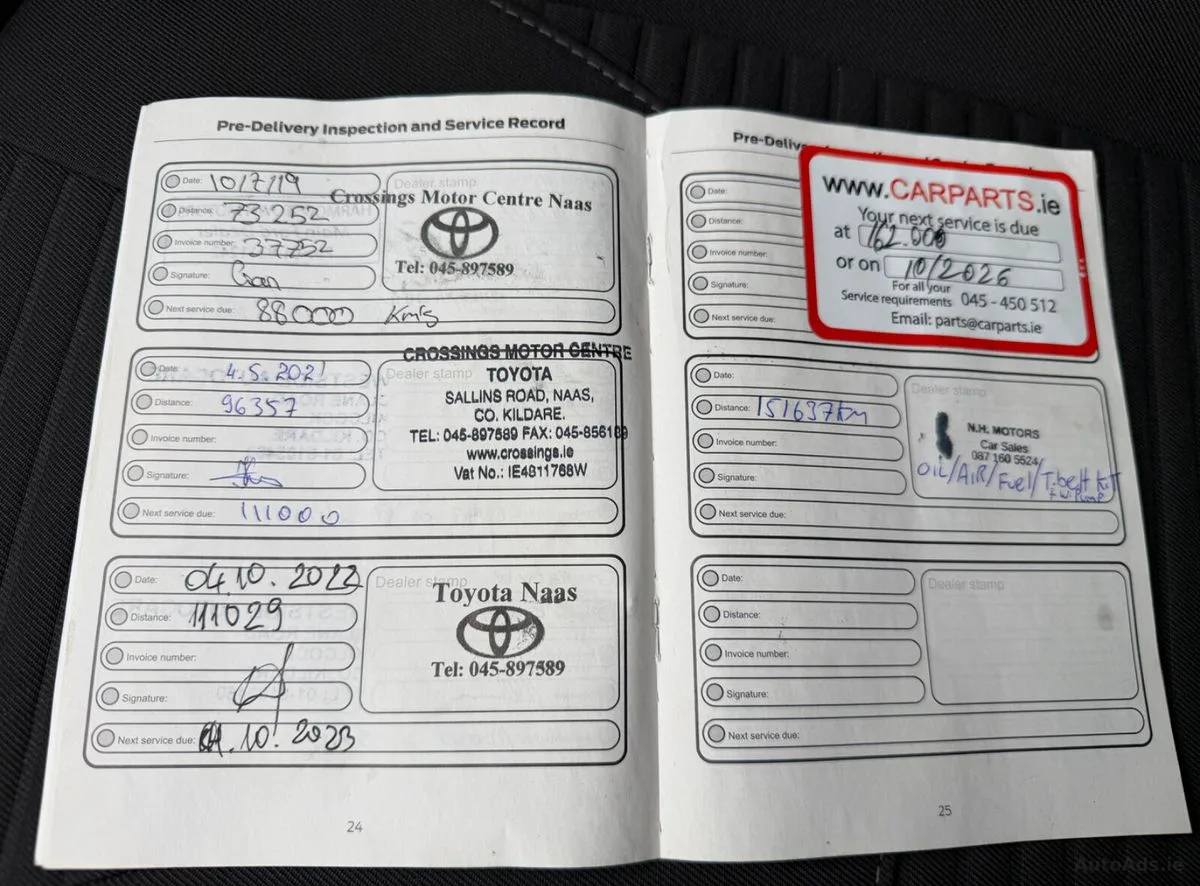 Pre-Delivery Inspection and Service Record
Date: 10/7/19
Distance: 73252
Invoice number: 37752
Signature:
Next service due: 88000 Km's
Dealer stamp
Crossings Motor Centre Naas
Tel: 045-897589
Date: 4.5.2021
Distance: 96357
Invoice number:
Signature:
Next service due: 111000
Dealer stamp
CROSSINGS MOTOR CENTRE
TOYOTA
SALLINS ROAD, NAAS,
CO. KILDARE.
TEL: 045-897589 FAX: 045-856189
www.crossings.ie
Vat No.: IE4811768W
Date: 04.10.2022
Distance: 111029
Invoice number:
Signature:
Next service due: 01.10.2023
Dealer stamp
Toyota Naas
Tel: 045-897589
24
Pre-Delive
Date:
Distance:
Invoice number:
Signature:
Next service due:
www.CARPARTS.ie
Your next service is due
at 162.000
or on 10/2026
For all your
Service requirements 045 - 450 512
Email: parts@carparts.ie
Date:
Distance: 151637km
Invoice number:
Signature:
Next service due:
Dealer stamp
N.H. MOTORS
Car Sales
087 160 5524
OIL/AIR/Fuel/T.belt KiT
+ W.Pump
Date:
Distance:
Invoice number:
Signature:
Next service due:
Dealer stamp
25
AutoAds.ie